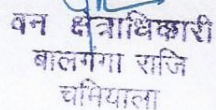 वन क्षेत्राधिकारी
बालगंगा राजि
चमियाला